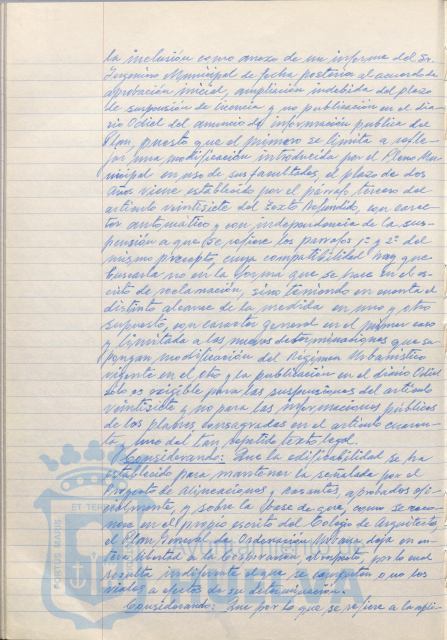 la inclusión como anexo de un informe del Sr.
Ingeniero Municipal de fecha posterior al acuerdo de
aprobación inicial, ampliación indebida del plazo
de suspensión de licencia y no publicación en el dia-
rio Odiel del anuncio de información publica del
Plan, puesto que el primero se limita a refle-
jar una modificación introducida por el Pleno Mu-
nicipal en uso de sus facultades, el plazo de dos
años viene establecido por el párrafo tercero del
articulo veintisiete del Texto Refundido, con carac-
ter automático y con independencia de la sus-
pensión a que se refiere los parrafos 1º y 2º del
mismo precepto, cuya compatibilidad hay que
buscarla no en la forma que se hace en el es-
crito de reclamación, sino teniendo en cuenta el
distinto alcance de la medida en uno y otro
supuesto, con caracter general en el primer caso
y limitado a las nuevas determinaciones que su-
pongan modificación del Régimen Urbanístico
vigente en el otro y la publicación en el diario Odiel
solo es exigible para las suspensiones del articulo
veintisiete y no para las informaciones públicas
de los planes consagradas en el articulo cuaren-
ta y uno del tan repetido texto legal.
Considerando: Que la edificabilidad se ha
establecido para mantener la señalada por el
Proyecto de alineaciones y rasantes, aprobados ofi-
cialmente, y sobre la base de que, como se reco-
noce en el propio escrito del Colegio de Arquitectos,
el Plan General de Ordenación Urbana deja en en-
tera libertad a la Corporación al respecto, por lo cual
resulta indiferente el que se computen o no los
viales a efectos de su determinación.
Considerando: Que por lo que se refiere a la apli-
PORTUS MARIS
ET TERRAE